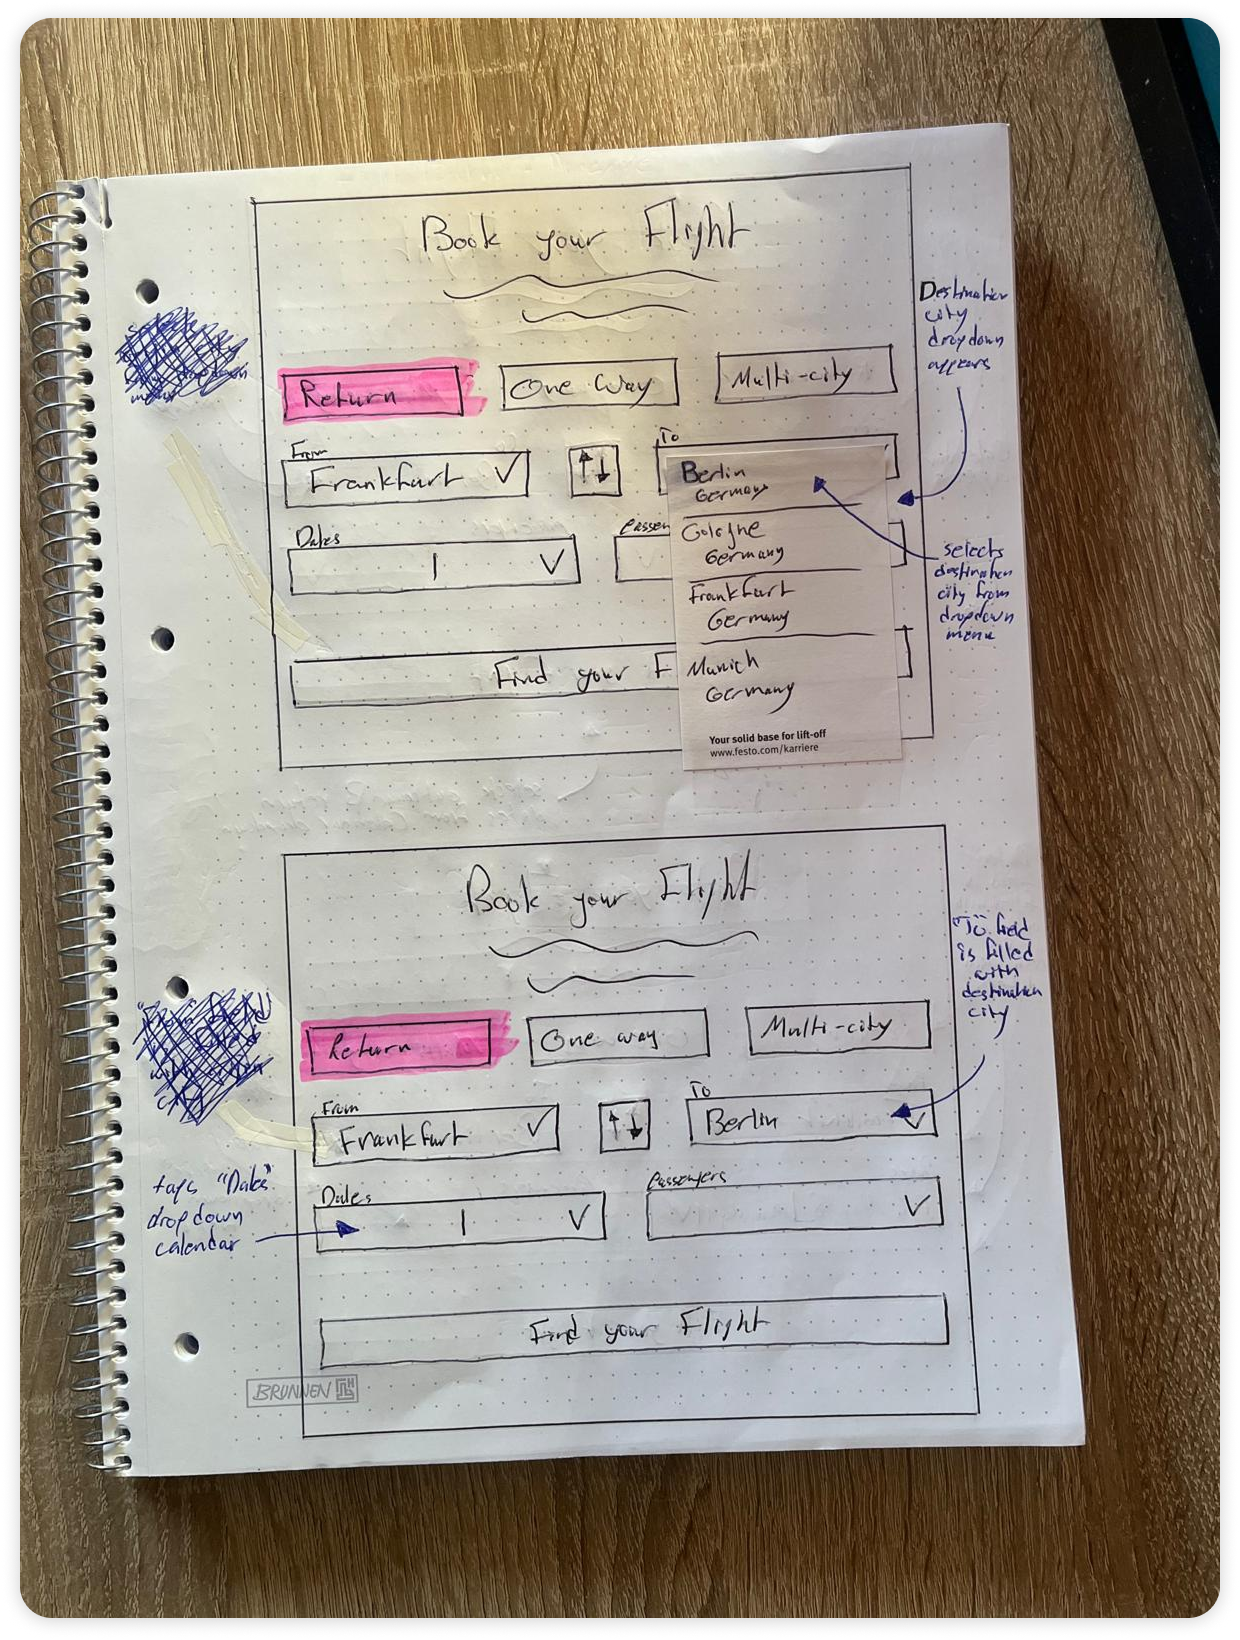 Book your Flight
Return
One Way
Multi-city
From
Frankfurt
To
Berlin
Germany
Cologne
Germany
Frankfurt
Germany
Munich
Germany
Your solid base for lift-off
www.festo.com/karriere
Dates
Passen
Find your F
Destination
city
dropdown
appears
selects
destination
city from
dropdown
menu
Book your Flight
Return
One way
Multi-city
From
Frankfurt
To
Berlin
Dates
Passengers
Find your Flight
"To" field
is filled
with
destination
city
taps "Dates"
dropdown
calendar
BRUNNEN